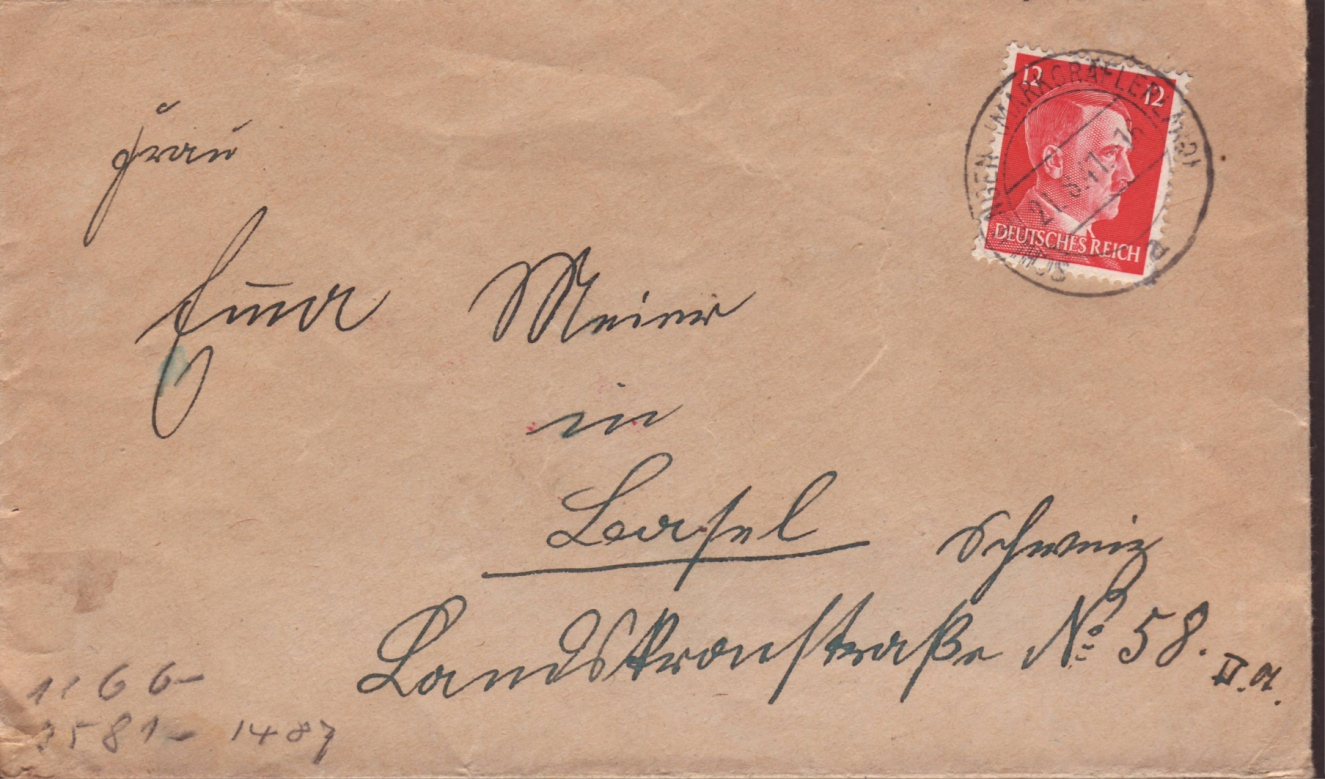 12 12
DEUTSCHES REICH
(MARKGRÄFLERLAND)
21.8.41.
Frau
Em̄a Meier
in
Basel Schweiz
Landskronstraße Nº 58. II.a.
1166-
3581- 1487